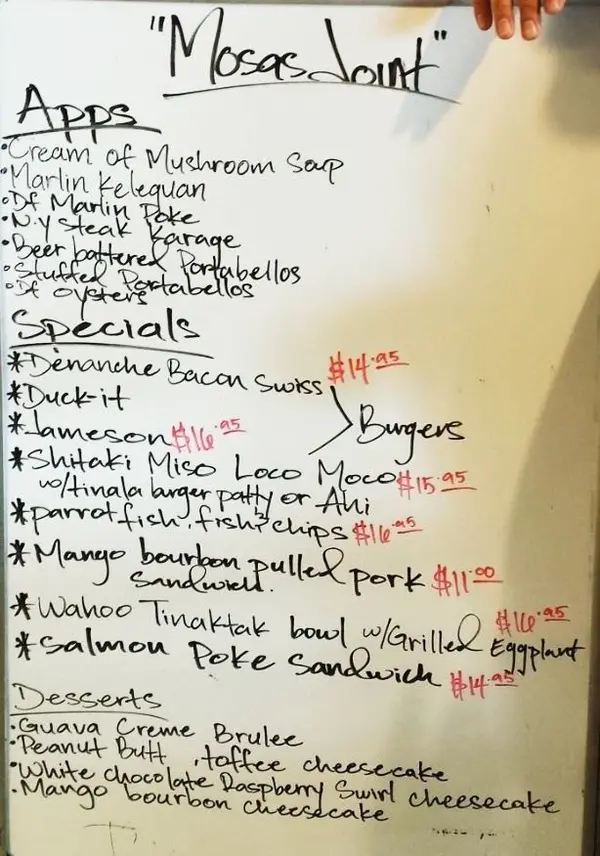 "Mosas Joint"
Apps
•Cream of Mushroom Soup
•Marlin Keleguan
•Df Marlin Poke
•N.Y Steak Karage
•Beer battered Portabellos
•Stuffed Portabellos
•Df oysters
Specials
*Denanche Bacon Swiss $14.95
*Duck-it
*Jameson $16.95
Burgers
*Shitaki Miso Loco Moco $15.95
w/tinala burger patty or Ahi
*parrotfish, fish & chips $16.95
*Mango bourbon pulled pork $11.00
Sandwich.
*Wahoo Tinaktak bowl w/Grilled Eggplant $16.95
*Salmon Poke Sandwich $14.95
Desserts
•Guava Creme Brulee
•Peanut Butt , toffee cheesecake
•White chocolate Raspberry Swirl cheesecake
•Mango bourbon cheesecake